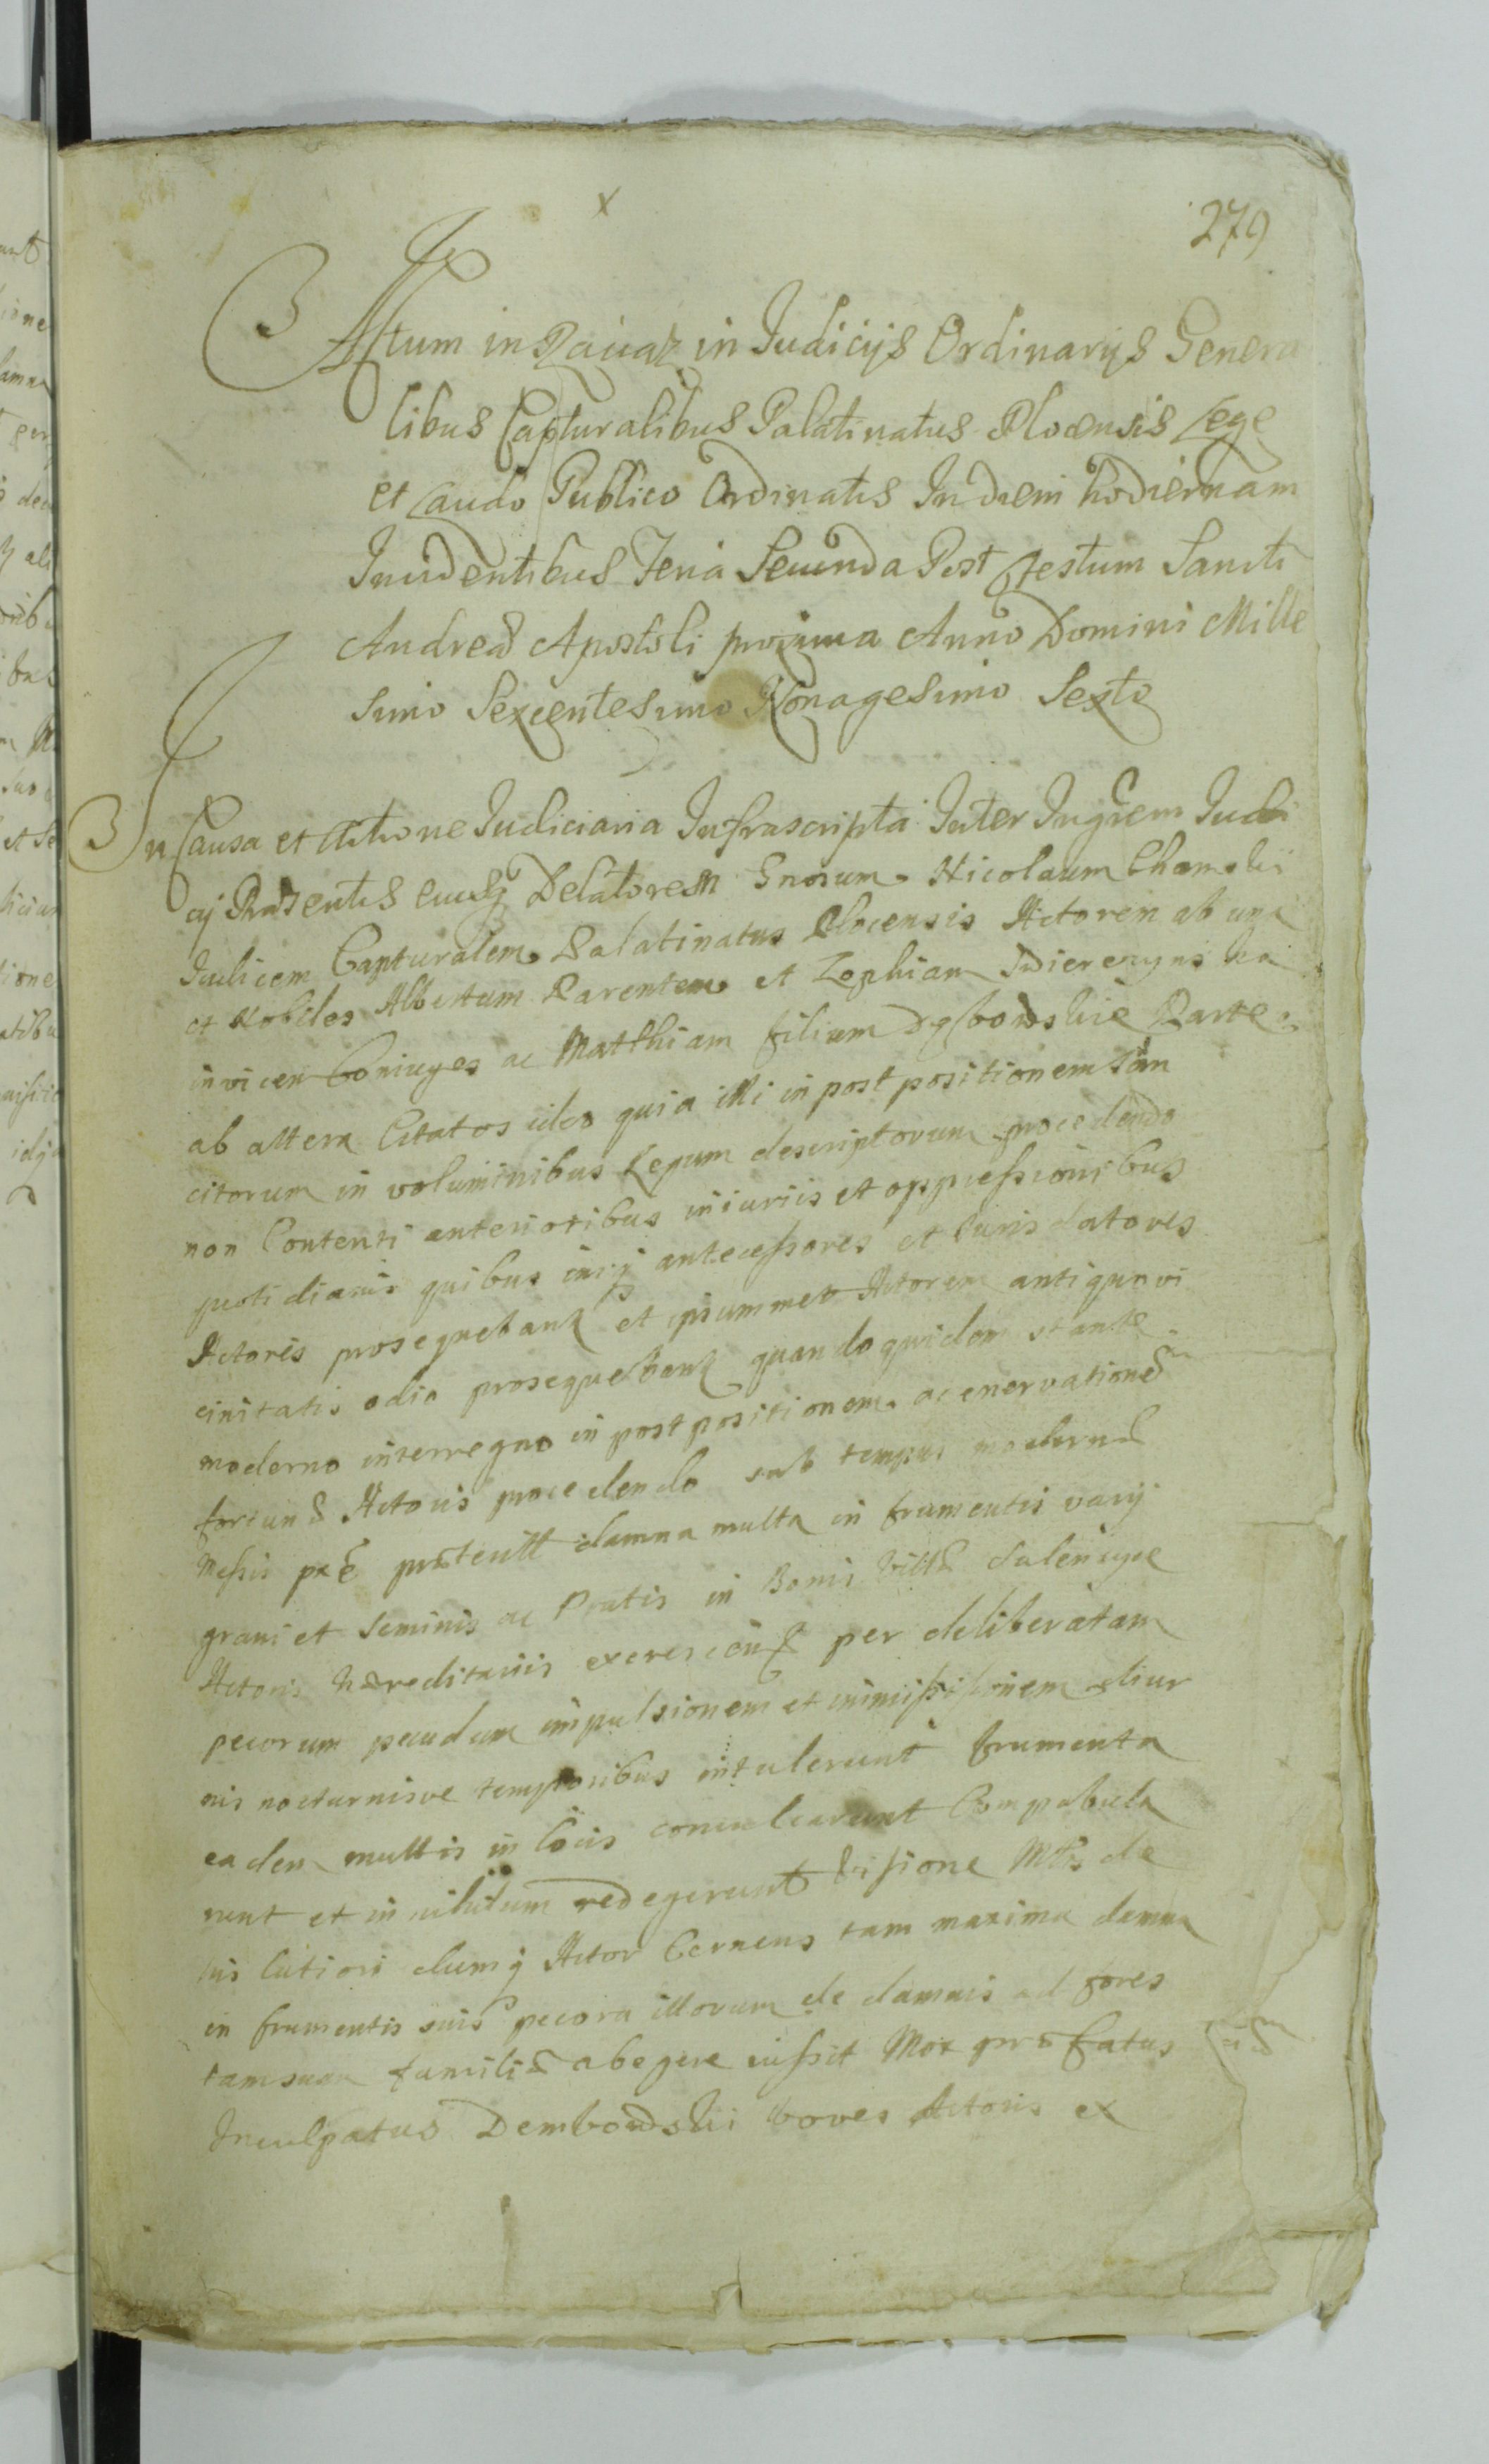 x
279
Actum in Raciąż in Judicijs Ordinarijs Genera
libus Capturalibus Palatinatus Plocensis Lege
et Laudo Publico Ordinatis In diem hodiernam
Incidentibus Feria Secunda Post Festum Sancti
Andreæ Apostoli proxima Anno Domini Mille
simo Sexcentesimo Nonagesimo Sexto
In Causa et Actione Judiciaria Infrascripta Inter Judi
cij Præsentis eiusq Delatorem Gnosum Nicolaum Chamski
Judicem Capturalem Palatinatus Plocensis Actorem ab una
et Nobiles Albertum Parentem et Zophiam
invicem Coniuges ac Matthiam filium Dębowskie Parte
ab altera Citatos ideo quia illi in post positionem san
citorum in voluminibus Legum descriptorum procedendo
non Contenti anterioribus iniuriis et oppressionibus
quotidianis quibus antecessores et Iuris datores
Actoris prosequebant et ipsummet Actorem antiqua vi
cinitatis odia prosequebant quandoquidem stante
moderno interregno in post positionem ac enervationē
fortunæ Actoris procedendo sub tempus modernæ
Messis præteritæ damna multa in frumentis varij
grani et Seminis ac Pratis in Bonis Villæ
Actoris hæreditariis per deliberatam
pecorum pecudum impulsionem et immissionem diur
nis nocturnisve temporibus intulerunt frumenta
eadem multis in locis conculcarunt Compabula
runt et in nihilum redegerunt Visione Mtis de
dumq Actor Cernens tam maxima damna
in frumentis suis pecora illorum de damnis ad fores
tam suam familiæ abegere iussit Mox præfatus
Inculpatus Dembowski boves Actoris ex